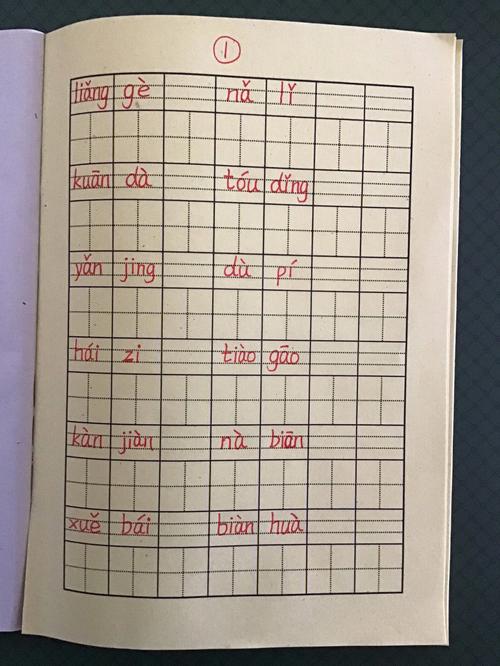 ①
liǎng gè nǎ lǐ
kuān dà tóu dǐng
yǎn jing dù pí
hái zi tiào gāo
kàn jiàn nà biān
xuě bái biàn huà